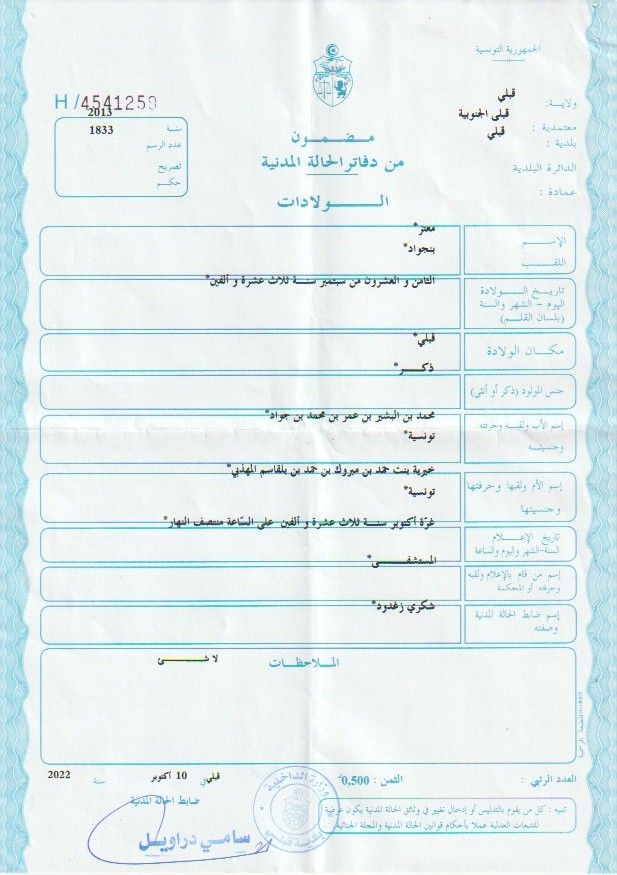 الجمهورية التونسية
ولاية: قبلي
معتمدية: قبلي الجنوبية
بلدية: قبلي
الدائرة البلدية
عمادة:
H/4541259
سنة 2013
عدد الرسم 1833
تصريح
حكم
مضمون
من دفاتر الحالة المدنية
الولادات
الإسم معتز*
اللقب بنجواد*
تاريخ الولادة
اليوم - الشهر والسنة
(بلسان القلم)
الثامن و العشرون من سبتمبر سنة ثلاث عشرة و ألفين*
مكان الولادة قبلي*
جنس المولود (ذكر أو أنثى) ذكر*
إسم الأب ولقبه وحرفته
وجنسيته
محمد بن البشير بن عمر بن محمد بن جواد*
تونسية*
إسم الأم ولقبها وحرفتها
وجنسيتها
خيرية بنت حمد بن مبروك بن حمد بن بلقاسم المهذبي*
تونسية*
تاريخ الإعلام
السنة-الشهر واليوم والساعة
غرّة أكتوبر سنة ثلاث عشرة و ألفين على السّاعة منتصف النهار*
إسم من قام بالإعلام ولقبه
وحرفته أو المحكمة
المستشفى*
إسم ضابط الحالة المدنية
وصفته
شكري زغدود*
الملاحظات
لا شئ
المطبعة الرسمية
العدد الرتبي:
الثمن: 0,500
قبلي في 10 أكتوبر سنة 2022
ضابط الحالة المدنية
سامي دراويل
وزارة الداخلية
بلدية قبلي
تنبيه: كل من يقوم بالتدليس أو إدخال تغيير في وثائق الحالة المدنية يكون عرضة
للتتبعات العدلية عملا بأحكام قوانين الحالة المدنية والمجلة الجنائية